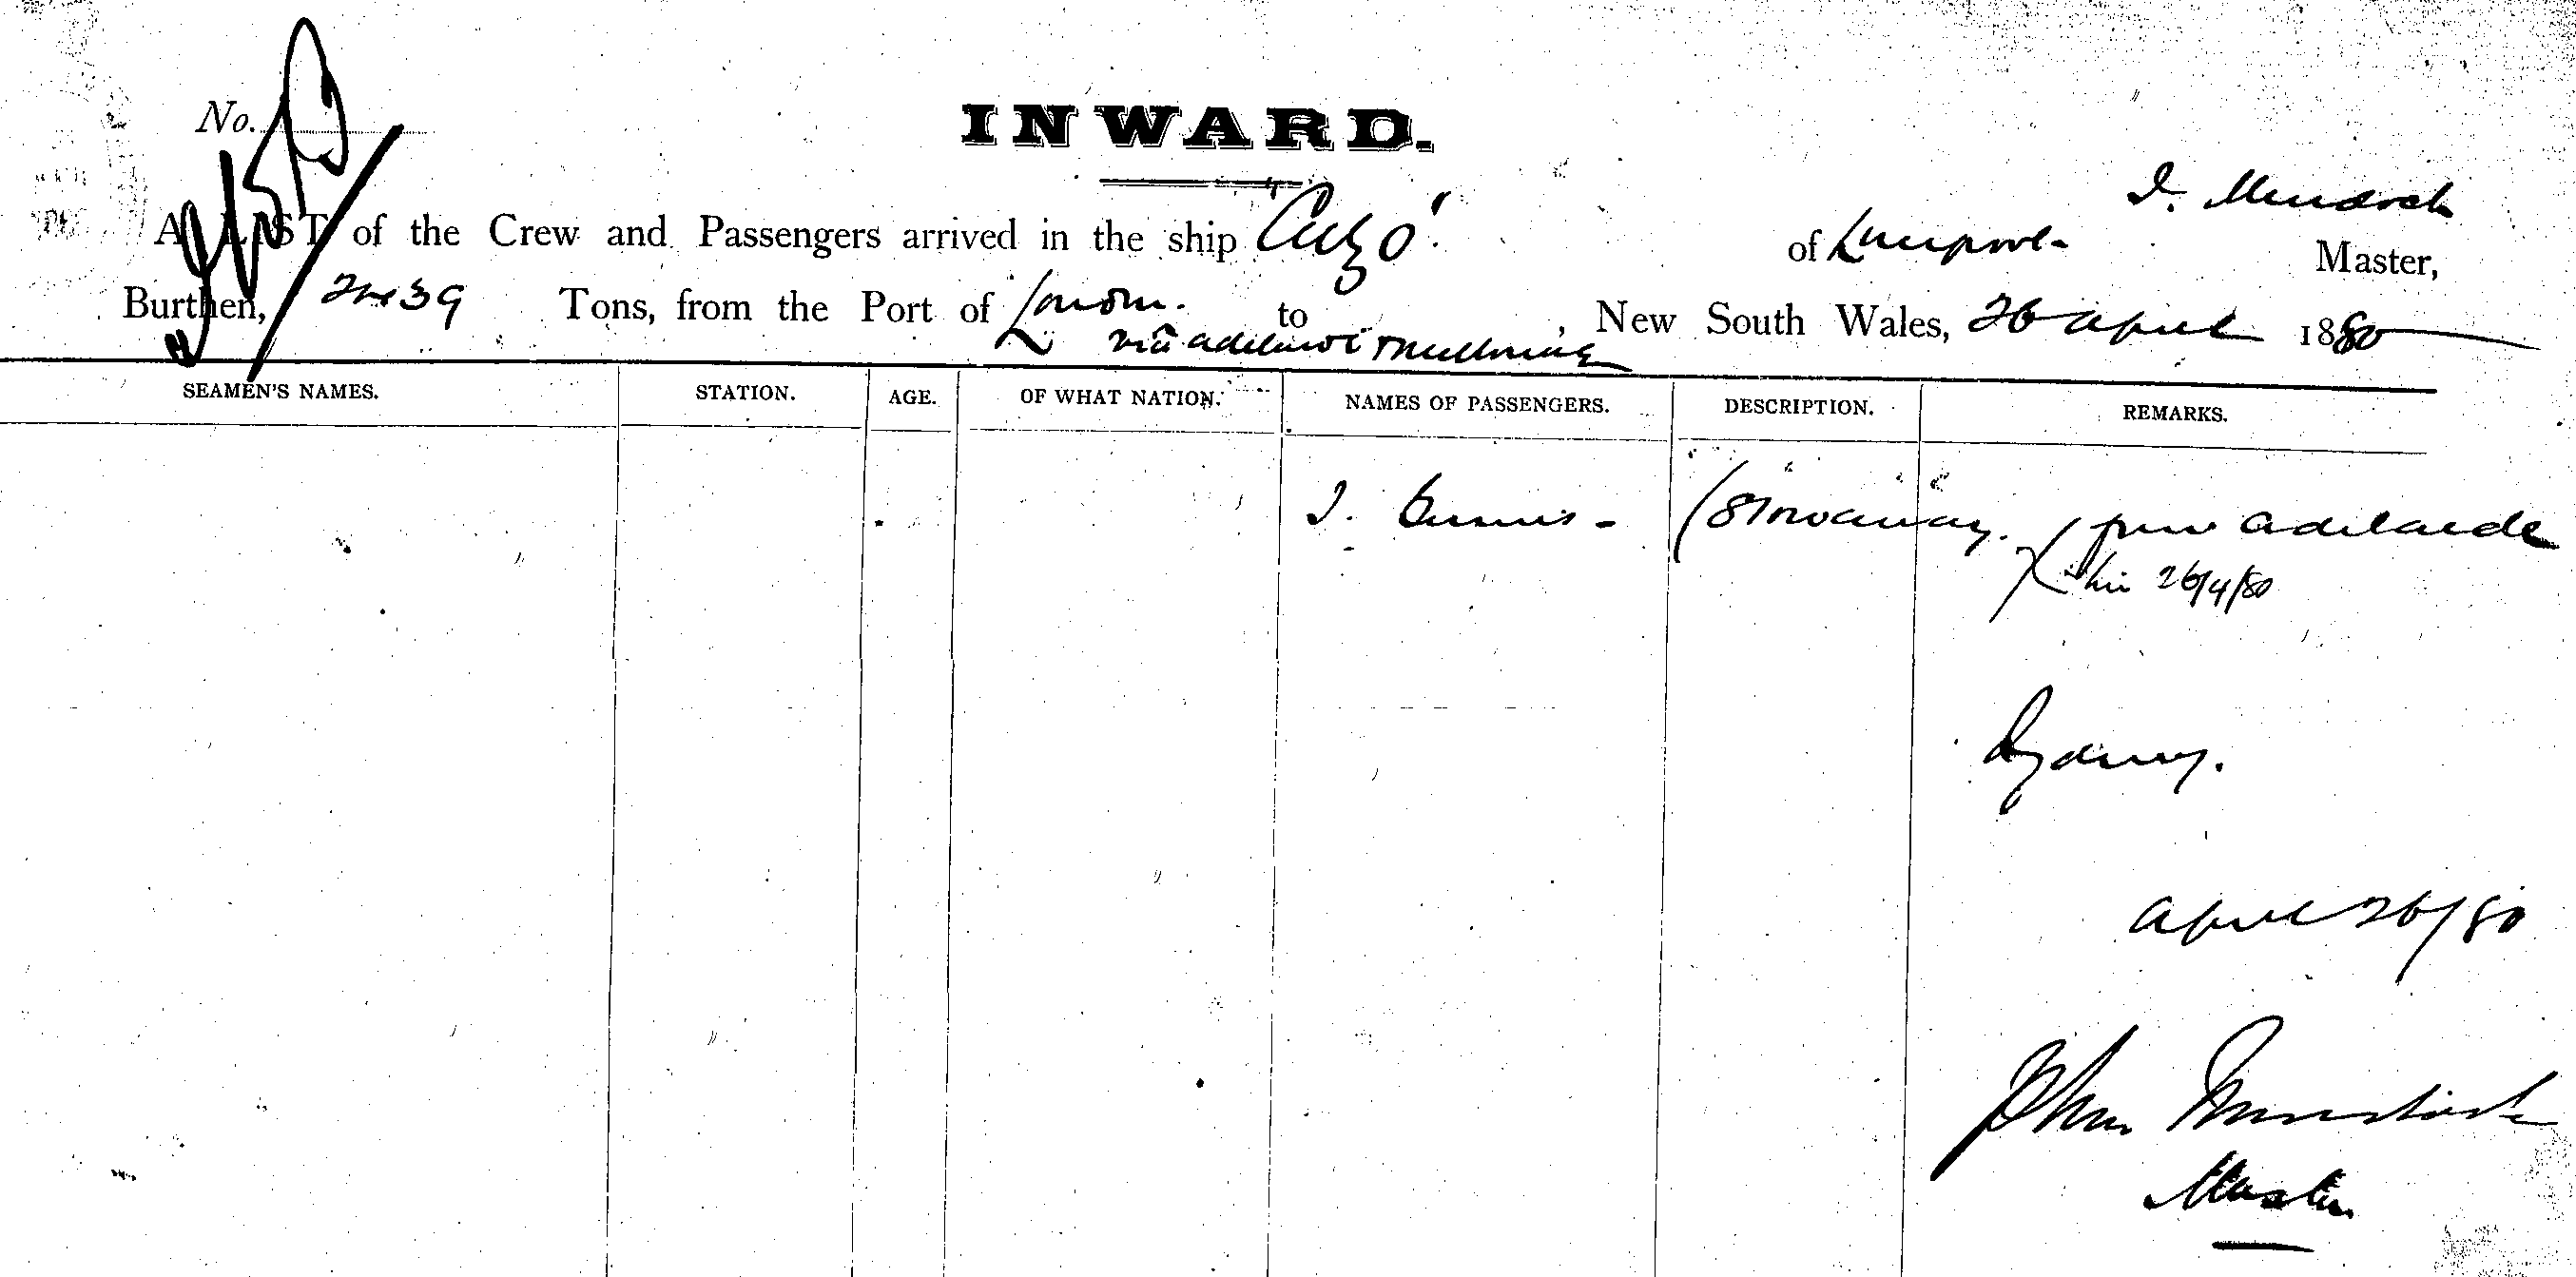 No.
INWARD.
J. Murdoch
A LIST of the Crew and Passengers arrived in the ship "Cuzco" of Liverpool Master,
Burthen, 2439 Tons, from the Port of London. to , New South Wales, 26 April 1880
via Adelaide & Melbourne
SEAMEN'S NAMES. STATION. AGE. OF WHAT NATION. NAMES OF PASSENGERS. DESCRIPTION. REMARKS.
J. (Stowaway. from Adelaide
26/4/80
Sydney.
April 26/80
John Murdoch
Master